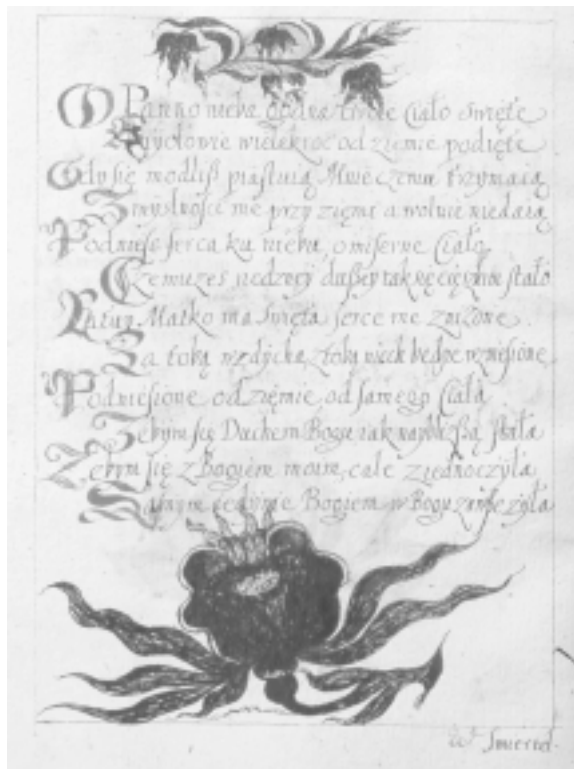 O Panno nieba godna twoie Ciało święte
wielekroć od ziemie podięte
Gdy się modliß piastuią Mnie czemu trzymaią
Zmysłności me przy ziemi a wolnie niedaią
Podnieść serca ku nieba, o mizerne Ciało
Czemużeś nędzney dußy tak ciężkie stało
Ratuy Matko ma Święta serce me zniżone
Za tobą wzdycha, z tobą niech będzie wzniesione
Podniesione od ziemie od samego Ciała
Żebym się Duchem Bogu iak naybliſzą stała
Żebym się z Bogiem moim, cale ziednoczyła
Samym iedynie Bogiem w Bogu żyła
Smierтel